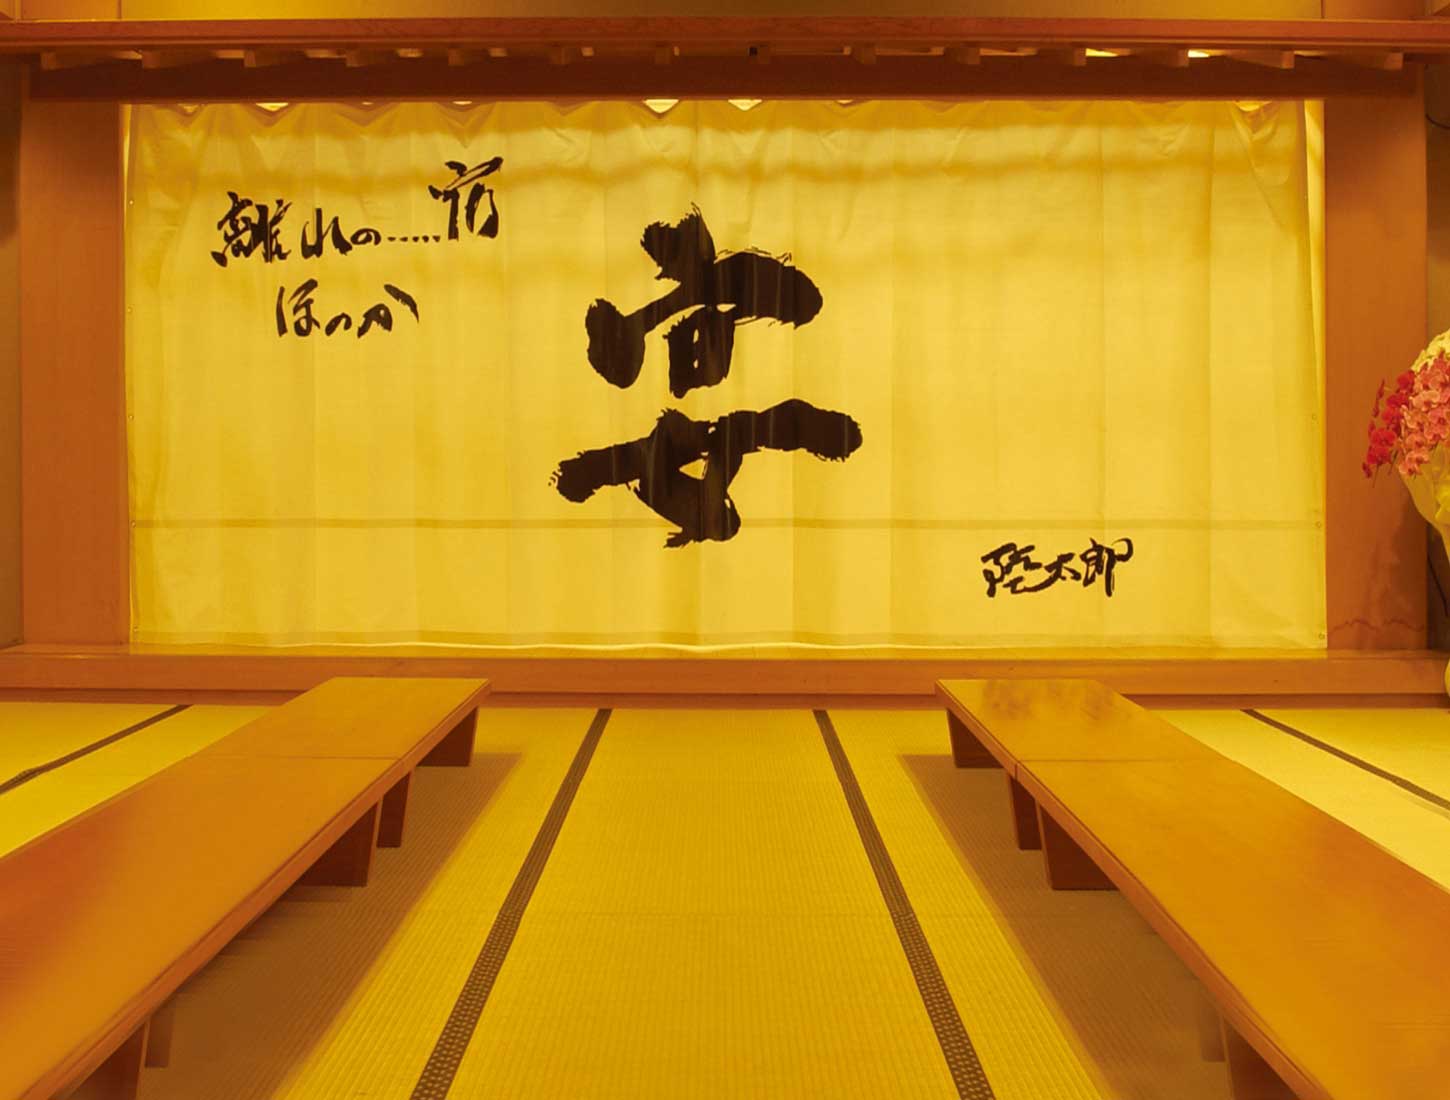 離れの……宿
ほのか
安
陸太郎